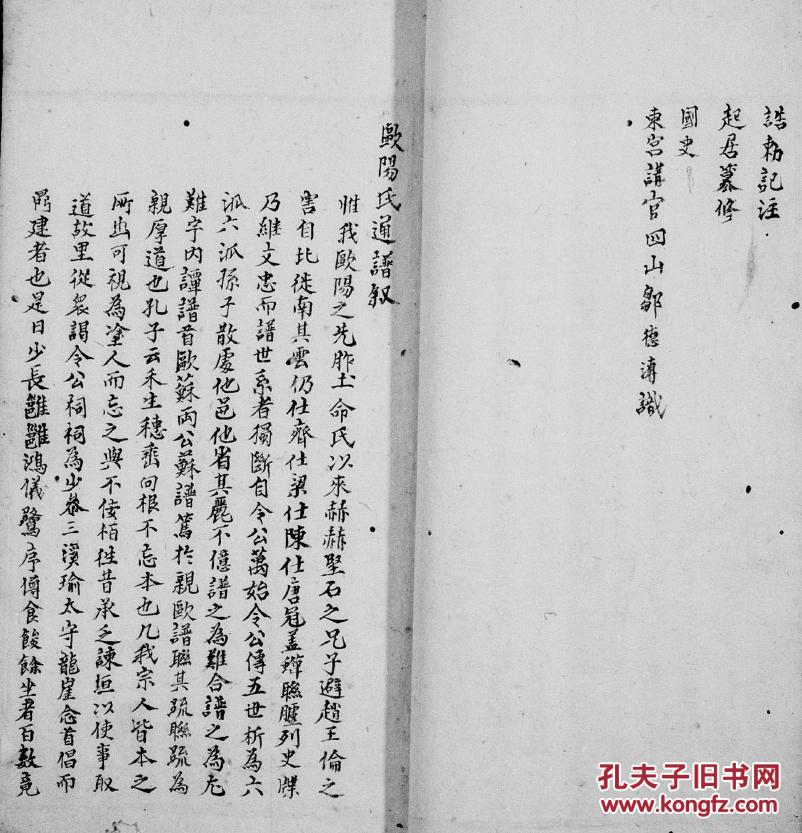 誥勅記注
起居纂修
國史
東宮講官四山鄒德溥識
歐陽氏通譜叙
惟我歐陽之先胙土命氏以來赫赫堅石之兄子避趙王倫之
害自北徙南其雲仍仕齊仕梁仕陳仕唐冠盖蟬聯臚列史牒
乃繼文忠而譜世系者獨斷自令公萬始令公傳五世析為六
派六派孫子散處他邑他省其麗不億譜之為難合譜之為尤
難宇内譚譜首歐蘇兩公蘇譜篤於親歐譜聯其疏聯疏為
親厚道也孔子云禾生穗垂向根不忘本也凡我宗人皆本之
所出可視為塗人而忘之與不佞栢徃昔承乏諫垣以使事取
道故里從衆謁令公祠祠為少叅三溪瑜太守龍崖念首倡而
剏建者也是日少長雝雝鴻儀鷺序傅食餕餘坐者百數竟
孔夫子旧书网
www.kongfz.com